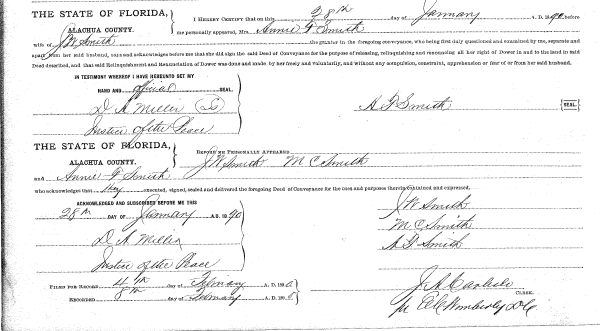 THE STATE OF FLORIDA,
ALACHUA COUNTY.
I HEREBY CERTIFY that on this 28th day of January A. D. 1890 before
me personally appeared, Mrs. Annie F Smith
wife of J W Smith the grantor in the foregoing conveyance, who being first duly questioned and examined by me, separate and
apart from her said husband, and acknowledges before me that she did sign the said Deed of Conveyance for the purpose of releasing, relinquishing and renouncing all her right of Dower in and to the land in said
Deed described, and that said Relinquishment and Renunciation of Dower was done and made by her freely and voluntarily, and without any compulsion, constraint, apprehension or fear of or from her said husband.
IN TESTIMONY WHEREOF I HAVE HEREUNTO SET MY
HAND AND official SEAL.
D. A. Miller
A F Smith SEAL.
Justice of the Peace
THE STATE OF FLORIDA,
ALACHUA COUNTY.
BEFORE ME PERSONALLY APPEARED J W Smith M C Smith
and Annie F Smith
who acknowledges that they executed, signed, sealed and delivered the foregoing Deed of Conveyance for the uses and purposes therein contained and expressed.
ACKNOWLEDGED AND SUBSCRIBED BEFORE ME THIS
28th DAY OF January A. D. 1890
J W Smith
M C Smith
D. A. Miller
A F Smith
Justice of the Peace
FILED FOR RECORD 4th day of February A. D. 1890
J. A. Carlisle CLERK.
RECORDED 8th day of February A. D. 1890
Wimberly D C